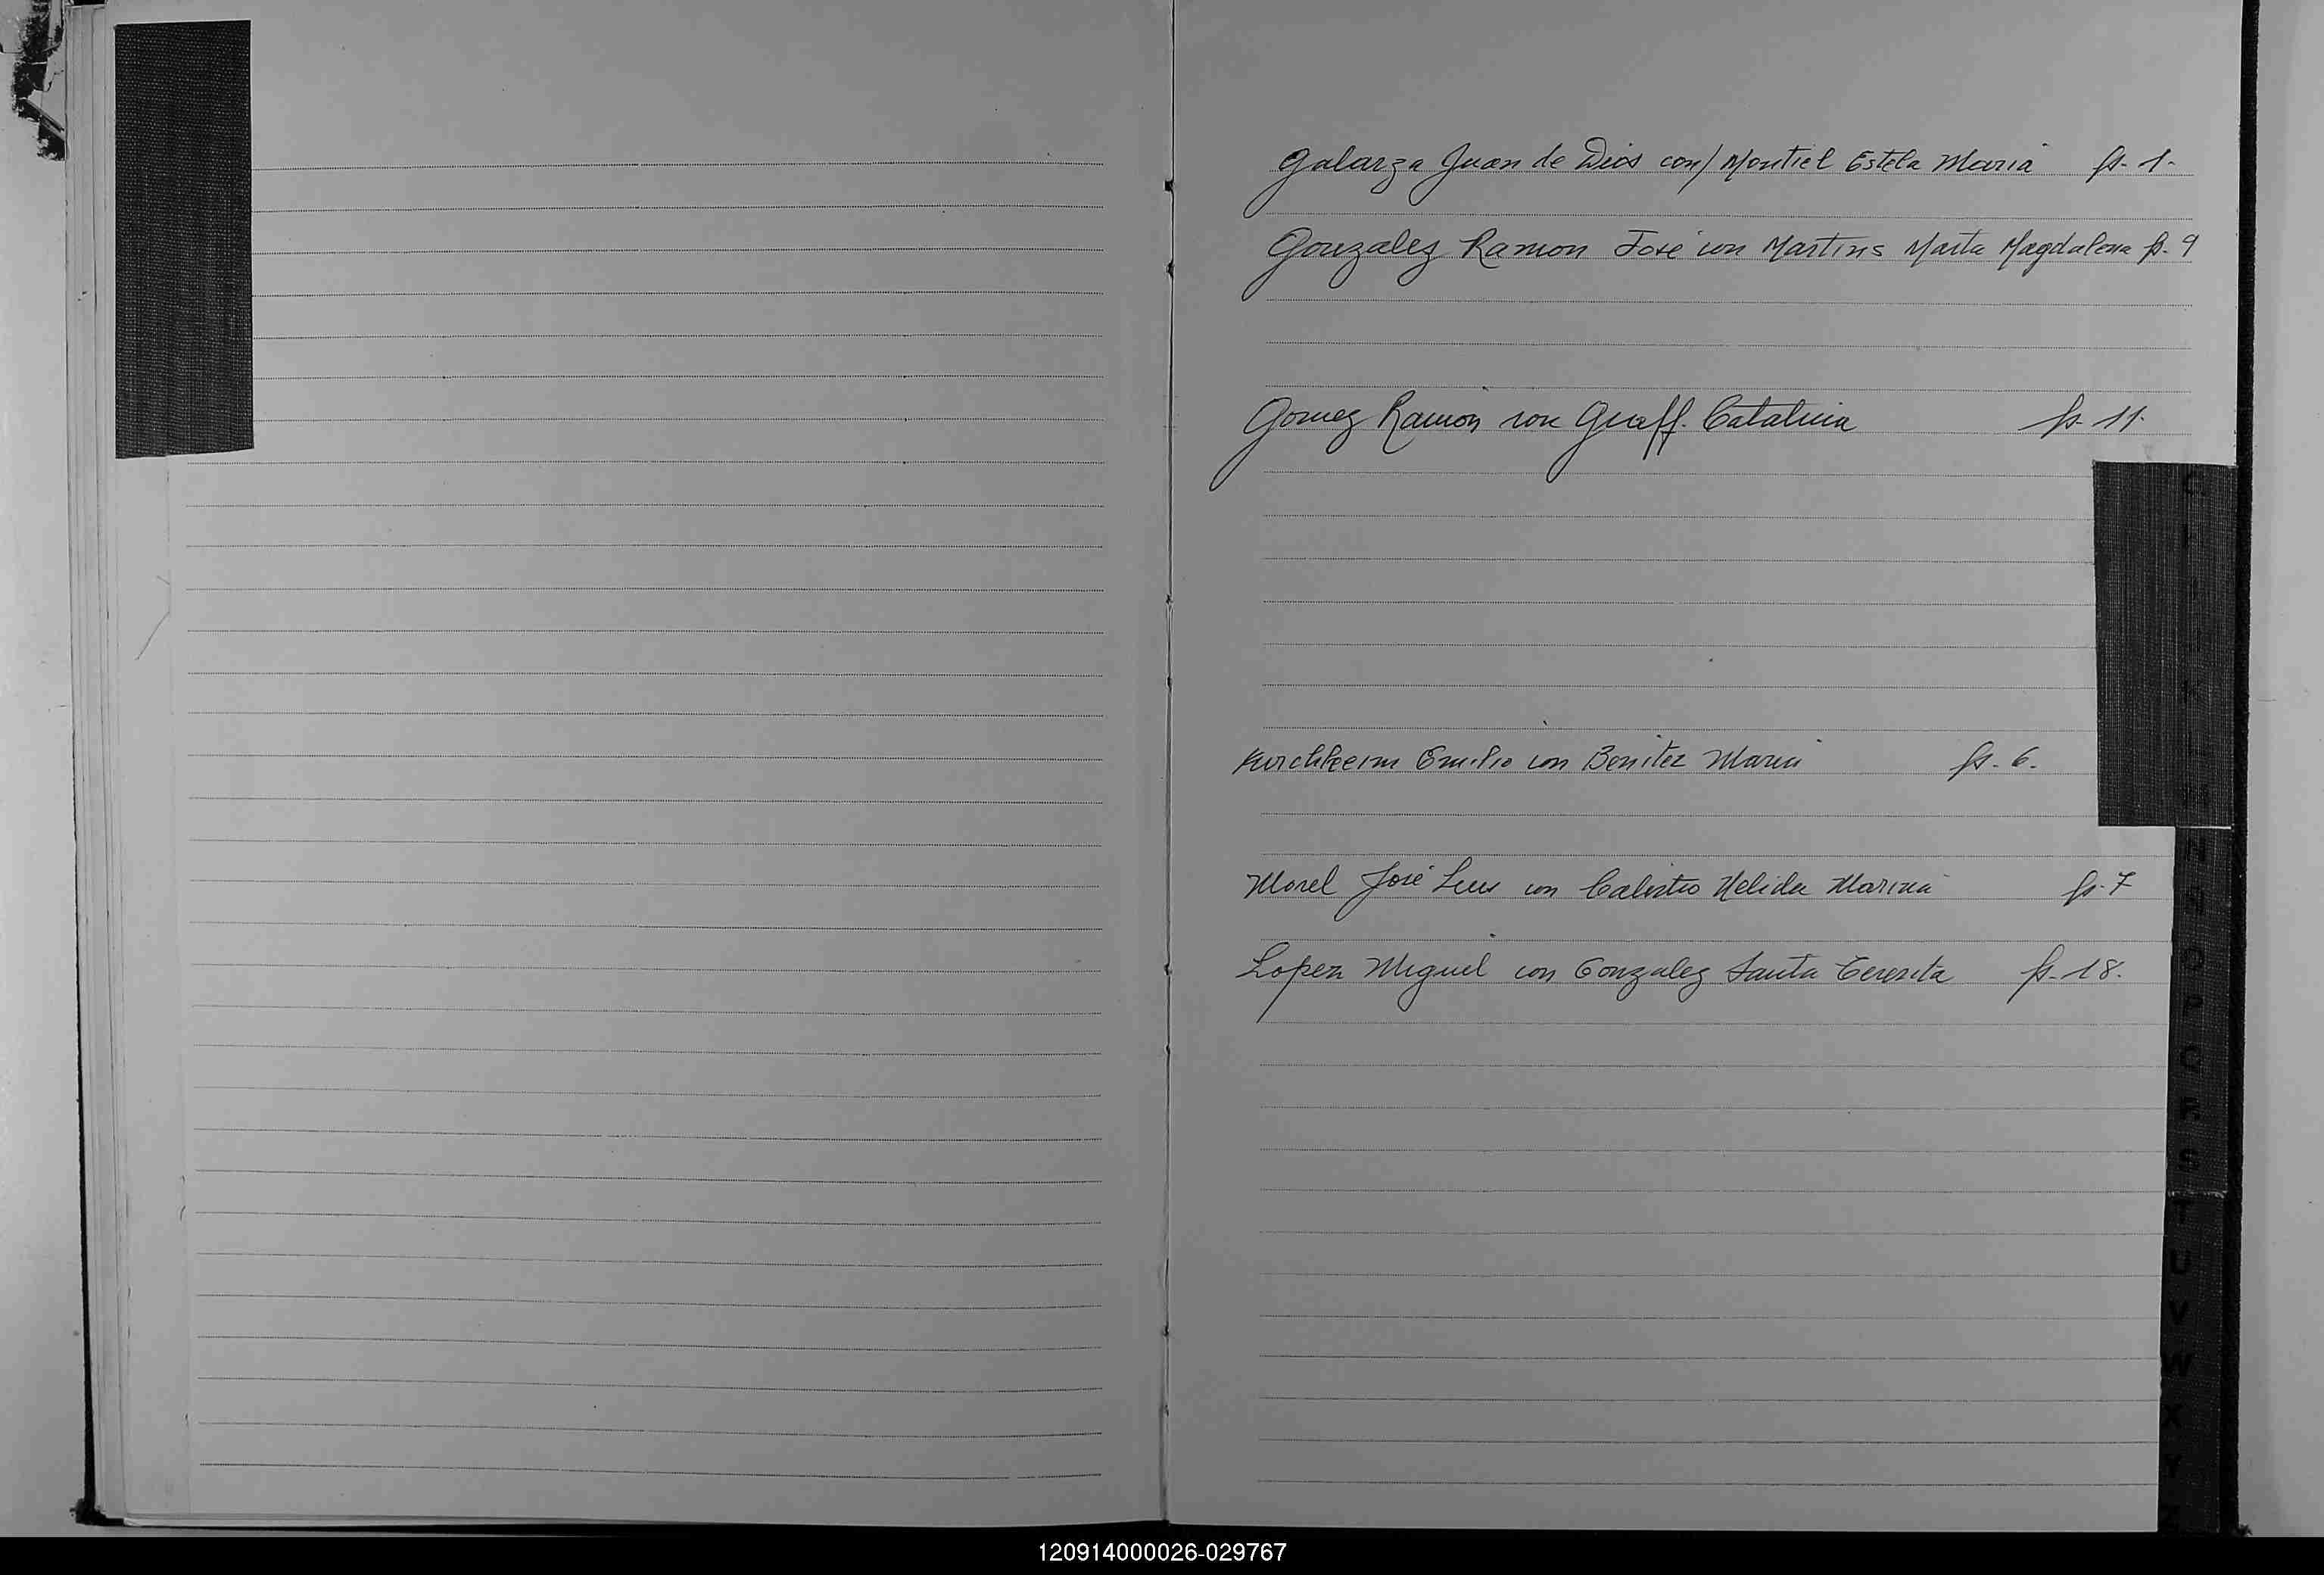 Galarza Juan de Dios con/ Montiel Estela Maria fs. 1.
Gonzalez Ramon José con Martins Marta Magdalena fs. 9
Gomez Ramón con Graff. Catalina fs. 11.
Kirchheim Emilio con Benitez Maria fs. 6.
Morel José Luis con Nelida Marina fs. 7
Lopez Miguel con Gonzalez Santa Teresita fs. 18.
O
P
R
S
T
U
V
W
X
Y
120914000026-029767